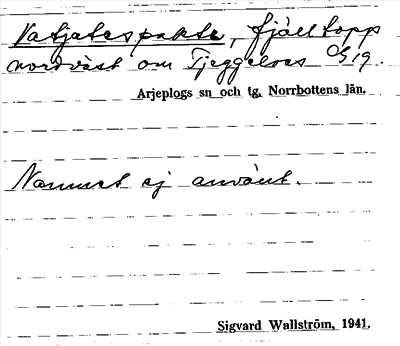 Vatjatespakte, fjälltopp
nordväst om Tjeggelvas Og 19.
Arjeplogs sn och tg, Norrbottens län.
Namnet ej använt.
Sigvard Wallström, 1941.